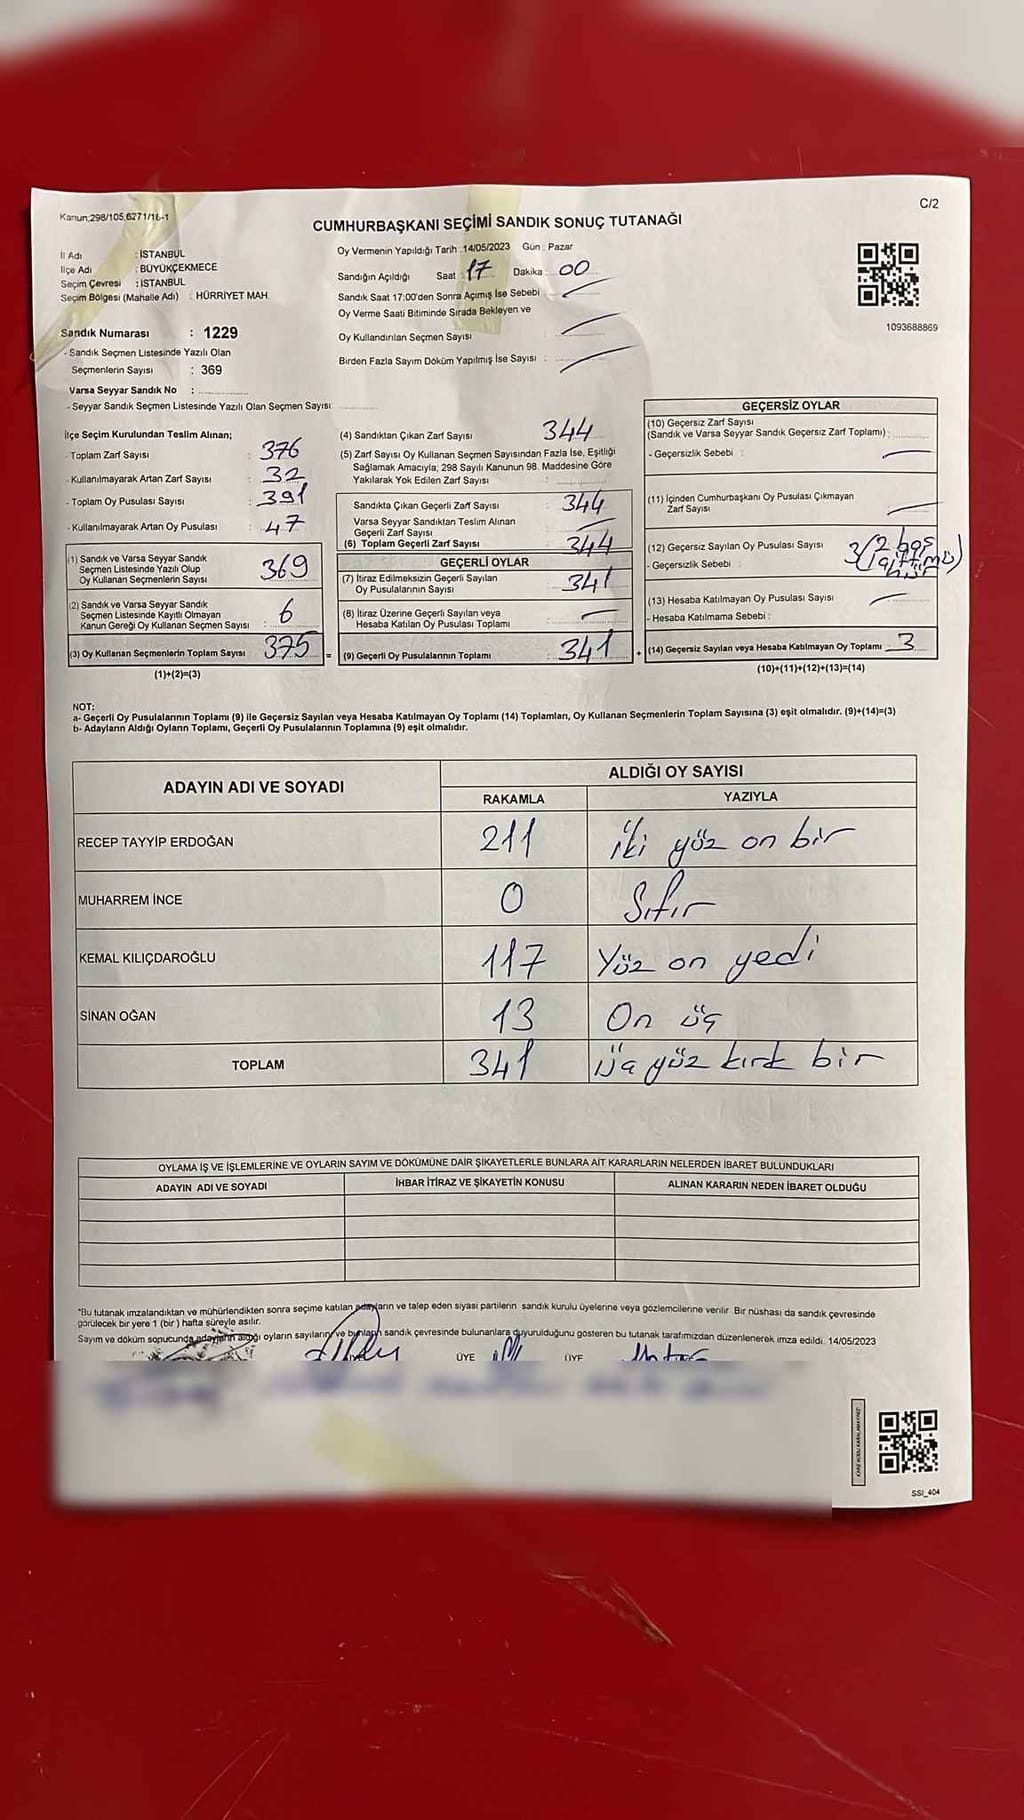 Kanun;298/105,6271/16-1
C/2
CUMHURBAŞKANI SEÇİMİ SANDIK SONUÇ TUTANAĞI
İl Adı : İSTANBUL
İlçe Adı : BÜYÜKÇEKMECE
Seçim Çevresi : İSTANBUL
Seçim Bölgesi (Mahalle Adı) : HÜRRİYET MAH.
Sandık Numarası : 1229
- Sandık Seçmen Listesinde Yazılı Olan
Seçmenlerin Sayısı : 369
Varsa Seyyar Sandık No :
- Seyyar Sandık Seçmen Listesinde Yazılı Olan Seçmen Sayısı:
Oy Vermenin Yapıldığı Tarih :14/05/2023 Gün : Pazar
Sandığın Açıldığı Saat : 17 Dakika : 00
Sandık Saat 17:00'den Sonra Açımış İse Sebebi :
Oy Verme Saati Bitiminde Sırada Bekleyen ve
Oy Kullandırılan Seçmen Sayısı :
Birden Fazla Sayım Döküm Yapılmış İse Sayısı :
1093688869
İlçe Seçim Kurulundan Teslim Alınan;
- Toplam Zarf Sayısı : 376
- Kullanılmayarak Artan Zarf Sayısı : 32
- Toplam Oy Pusulası Sayısı : 391
- Kullanılmayarak Artan Oy Pusulası : 47
(1) Sandık ve Varsa Seyyar Sandık
Seçmen Listesinde Yazılı Olup
Oy Kullanan Seçmenlerin Sayısı : 369
(2) Sandık ve Varsa Seyyar Sandık
Seçmen Listesinde Kayıtlı Olmayan
Kanun Gereği Oy Kullanan Seçmen Sayısı : 6
(3) Oy Kullanan Seçmenlerin Toplam Sayısı 375 =
(1)+(2)=(3)
(4) Sandıktan Çıkan Zarf Sayısı 344
(5) Zarf Sayısı Oy Kullanan Seçmen Sayısından Fazla İse, Eşitliği
Sağlamak Amacıyla; 298 Sayılı Kanunun 98. Maddesine Göre
Yakılarak Yok Edilen Zarf Sayısı :
Sandıkta Çıkan Geçerli Zarf Sayısı 344
Varsa Seyyar Sandıktan Teslim Alınan
Geçerli Zarf Sayısı
(6) Toplam Geçerli Zarf Sayısı 344
GEÇERLİ OYLAR
(7) İtiraz Edilmeksizin Geçerli Sayılan
Oy Pusulalarının Sayısı : 341
(8) İtiraz Üzerine Geçerli Sayılan veya
Hesaba Katılan Oy Pusulası Toplamı :
(9) Geçerli Oy Pusulalarının Toplamı : 341 +
GEÇERSİZ OYLAR
(10) Geçersiz Zarf Sayısı
(Sandık ve Varsa Seyyar Sandık Geçersiz Zarf Toplamı) :
- Geçersizlik Sebebi :
(11) İçinden Cumhurbaşkanı Oy Pusulası Çıkmayan
Zarf Sayısı
(12) Geçersiz Sayılan Oy Pusulası Sayısı 3 (2 boş
- Geçersizlik Sebebi :
(13) Hesaba Katılmayan Oy Pusulası Sayısı
- Hesaba Katılmama Sebebi :
(14) Geçersiz Sayılan veya Hesaba Katılmayan Oy Toplamı 3
(10)+(11)+(12)+(13)=(14)
NOT:
a- Geçerli Oy Pusulalarının Toplamı (9) ile Geçersiz Sayılan veya Hesaba Katılmayan Oy Toplamı (14) Toplamları, Oy Kullanan Seçmenlerin Toplam Sayısına (3) eşit olmalıdır. (9)+(14)=(3)
b- Adayların Aldığı Oyların Toplamı, Geçerli Oy Pusulalarının Toplamına (9) eşit olmalıdır.
ADAYIN ADI VE SOYADI
ALDIĞI OY SAYISI
RAKAMLA YAZIYLA
RECEP TAYYİP ERDOĞAN 211 iki yüz on bir
MUHARREM İNCE 0 Sıfır
KEMAL KILIÇDAROĞLU 117 Yüz on yedi
SİNAN OĞAN 13 On üç
TOPLAM 341 üç yüz kırk bir
OYLAMA İŞ VE İŞLEMLERİNE VE OYLARIN SAYIM VE DÖKÜMÜNE DAİR ŞİKAYETLERLE BUNLARA AİT KARARLARIN NELERDEN İBARET BULUNDUKLARI
ADAYIN ADI VE SOYADI İHBAR İTİRAZ VE ŞİKAYETİN KONUSU ALINAN KARARIN NEDEN İBARET OLDUĞU
*Bu tutanak imzalandıktan ve mühürlendikten sonra seçime katılan adayların ve talep eden siyasi partilerin sandık kurulu üyelerine veya gözlemcilerine verilir. Bir nüshası da sandık çevresinde
görülecek bir yere 1 (bir) hafta süreyle asılır.
Sayım ve döküm sonucunda adayların aldığı oyların sayılarını ve bunların sandık çevresinde bulunanlara duyurulduğunu gösteren bu tutanak tarafımızdan düzenlenerek imza edildi. 14/05/2023
ÜYE ÜYE
SSI_404